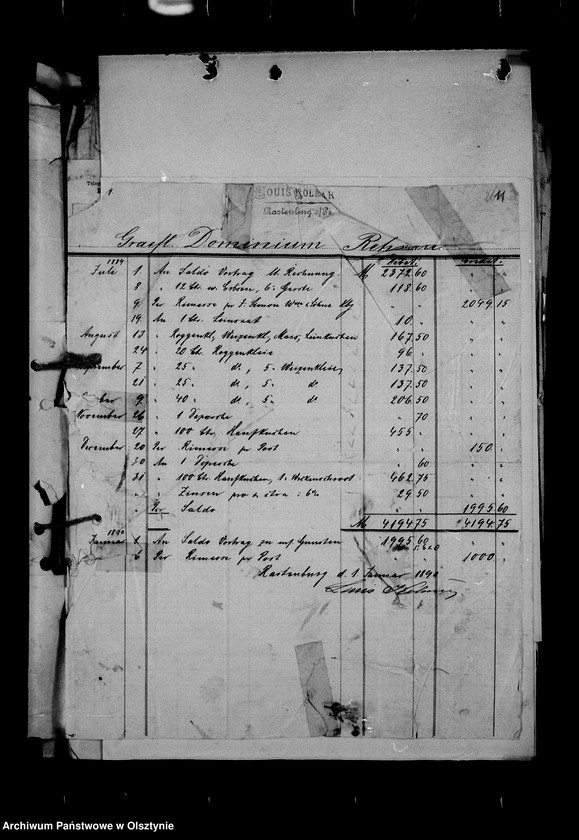 1.
11
LOUIS KOLMAR
Rastenburg o/Pr.
Graefl. Dominium
Debet. Credit.
1889
Juli 1 An Saldo Vortrag lt. Rechnung. M 2372 60 " "
8 " 12 Ctr. w. Erbsen, 6 " Gerste " 118 60 " "
9 Per Rimesse pr. S. Simon Wwe & Söhne Kbg " " 2049 15
19 An 1 Ctr. Leinsaat " 10 " " "
August 13 " Roggenkl, Weizenkl, Mais, Leinkuchen " 167 50 " "
24 " 20 Ctr. Roggenkleie " 96 " " "
September 7 " 25 " do, 5 " Weizenkleie " 137 50 " "
21 " 25 " do, 5 " do " 137 50 " "
ber 9 " 40 " do, 5 " do " 206 50 " "
November 26 " 1 Depesche " " 70 " "
27 " 100 Ctr. Hanfkuchen " 455 " " "
December 20 Per Rimesse per Post " " 150 "
30 An 1 Depesche " " 60 " "
31 " 100 Ctr Hanfkuchen, 1 " " 462 75 " "
" " Zinsen pro " 29 50 " "
" Per Saldo " " 1995 60
M 4194 75 4194 75
1890
Januar 1 An Saldo Vortrag zu m/ Gunsten 1995 60 " "
6 Per Rimesse pr Post " " 1000 "
Rastenburg d. 1 Januar 1890
Louis Kolmar
Archiwum Państwowe w Olsztynie